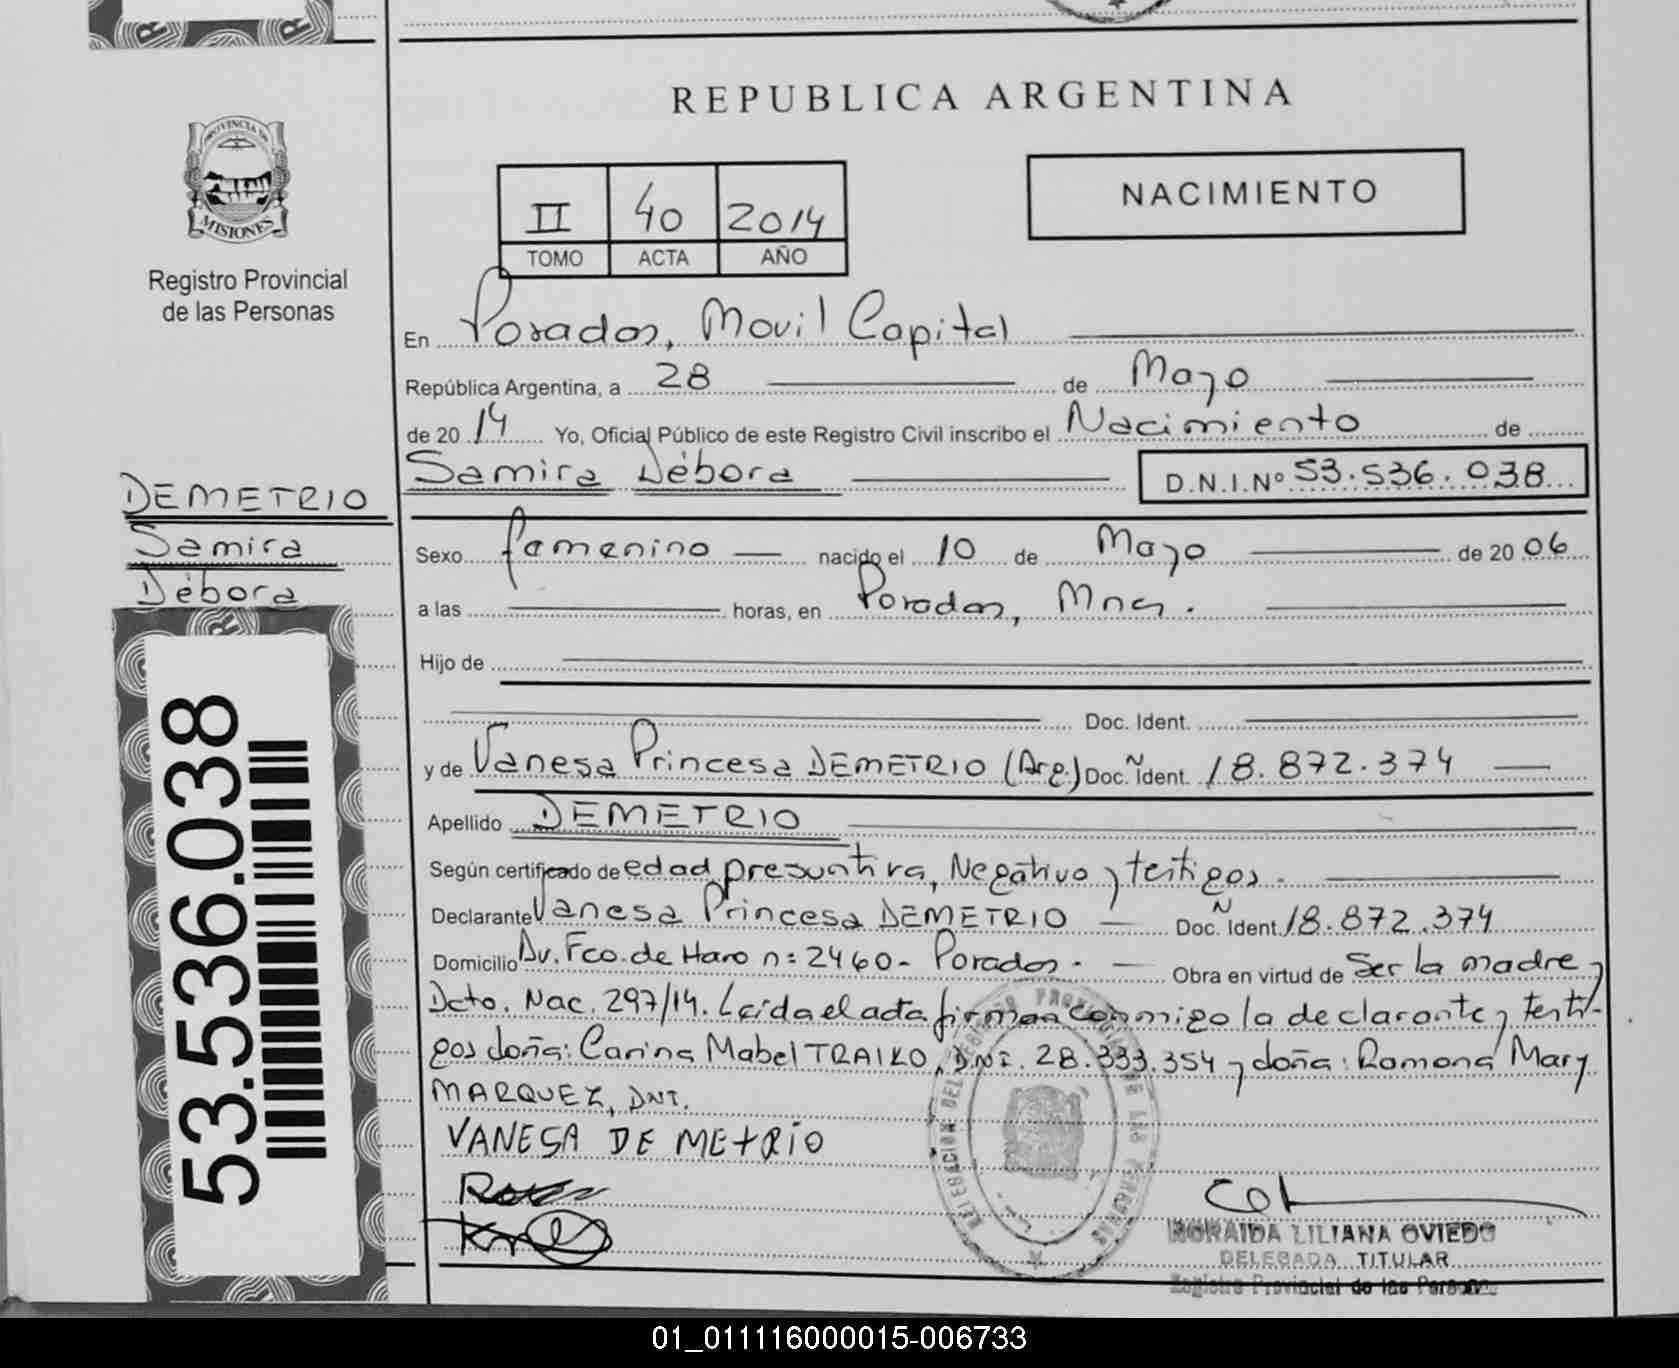 REPUBLICA ARGENTINA
PROVINCIA DE
MISIONES
Registro Provincial
de las Personas
II 40 2014
TOMO ACTA AÑO
NACIMIENTO
En Posadas, Movil Capital
República Argentina, a 28 de Mayo
de 2014 Yo, Oficial Público de este Registro Civil inscribo el Nacimiento de
Samira Débora D.N.I.Nº 53.536.038
DEMETRIO
Samira
Débora
Sexo femenino nacido el 10 de Mayo de 2006
a las horas, en Posadas, Mnes.
Hijo de
Doc. Ident.
y de Vanesa Princesa DEMETRIO (Arg.) Doc. Ñ Ident. 18.872.374
Apellido DEMETRIO
Según certificado de edad presuntiva, Negativo y testigos.
Declarante Vanesa Princesa DEMETRIO Doc. Ñ Ident. 18.872.374
Domicilio Av. Fco. de Haro n: 2460- Posadas. Obra en virtud de Ser la madre y
Dcto. Nac. 297/14. Leída el acta firman conmigo la declarante y testi-
gos doña: Carina Mabel TRAIKO, DNI. 28.333.354 y doña: Ramona Mary
MARQUEZ, DNI.
VANESA DEMETRIO
53.536.038
NORAIDA LILIANA OVIEDO
DELEGADA TITULAR
Registro Provincial de las Personas
01_011116000015-006733